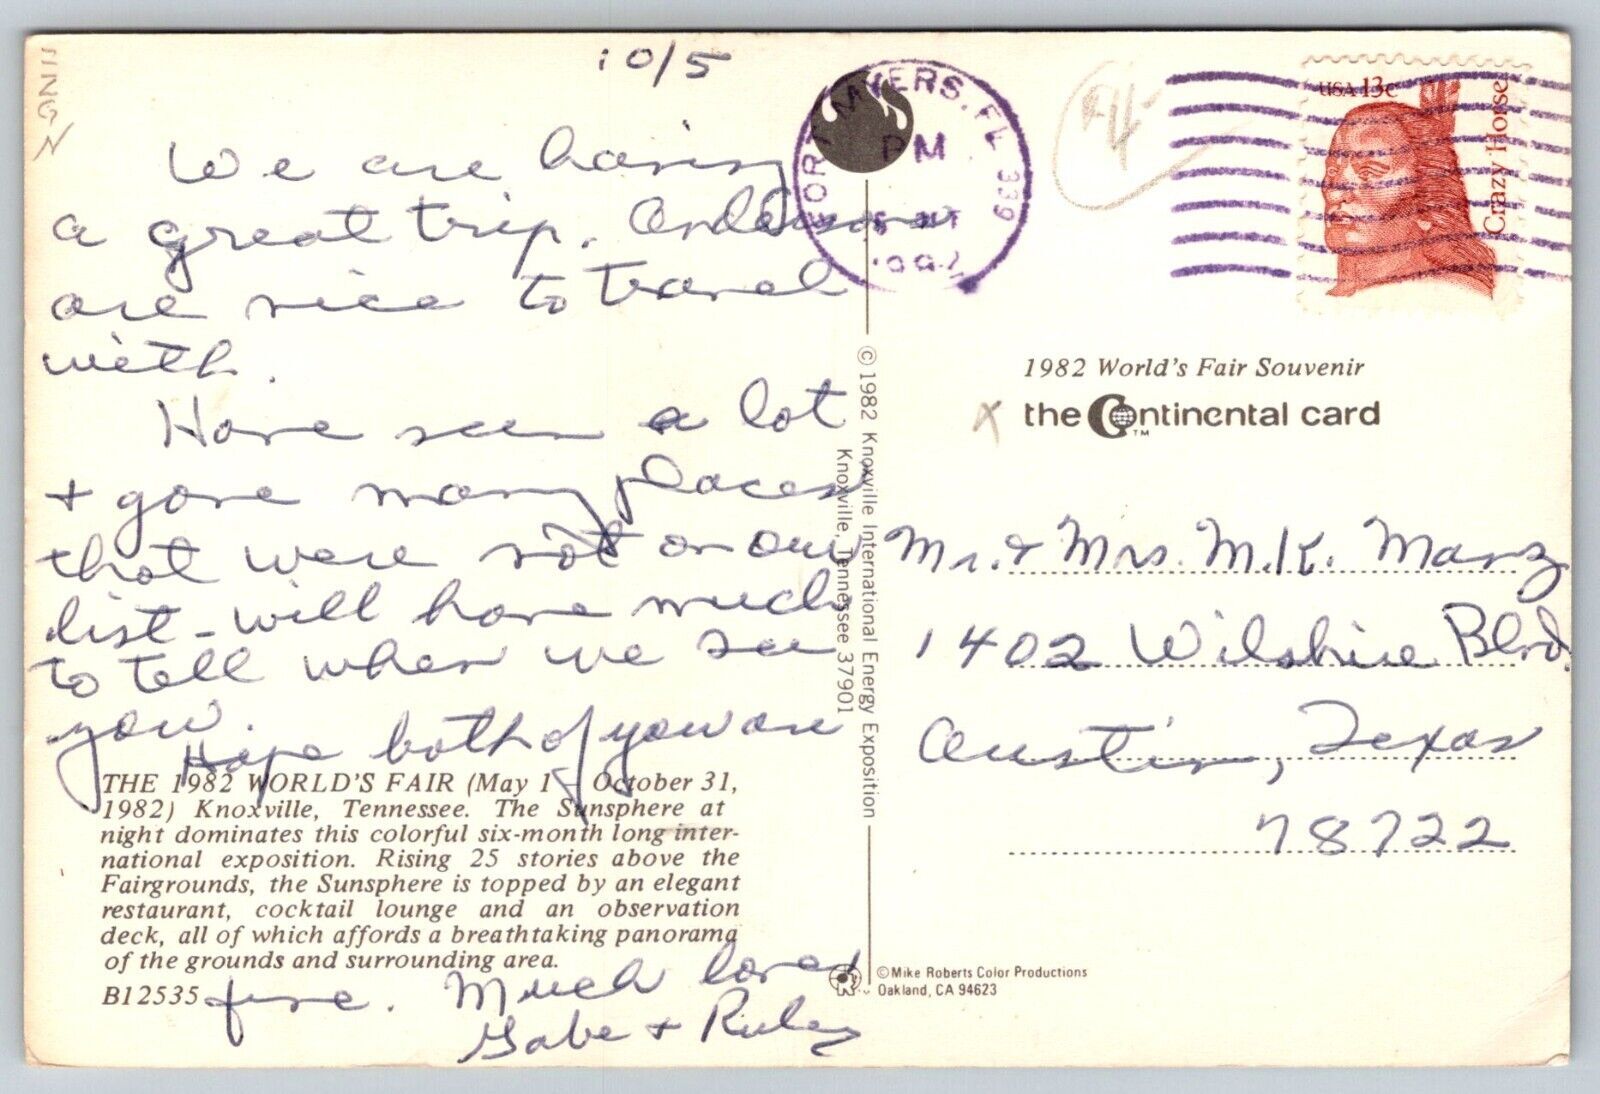 10/5
We are having
a great trip. Andersons
are nice to travel
with.
Have seen a lot
+ gone many places
that were not on our
list - will have much
to tell when we see
you.
Hope both of you are
fine. Much love,
Gabe + Ruby
THE 1982 WORLD'S FAIR (May 1 October 31,
1982) Knoxville, Tennessee. The Sunsphere at
night dominates this colorful six-month long inter-
national exposition. Rising 25 stories above the
Fairgrounds, the Sunsphere is topped by an elegant
restaurant, cocktail lounge and an observation
deck, all of which affords a breathtaking panorama
of the grounds and surrounding area.
B12535
© 1982 Knoxville International Energy Exposition
Knoxville, Tennessee 37901
FORT MYERS, FL 339
PM
1982
USA 13c
Crazy Horse
1982 World's Fair Souvenir
the Continental card
TM
Mr. & Mrs. M.K. Marz
1402 Wilshire Blvd.
Austin, Texas
78722
R
© Mike Roberts Color Productions
Oakland, CA 94623